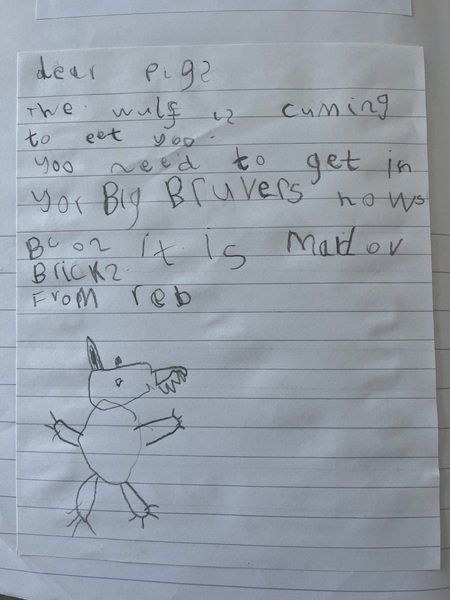 dear pigs
The wulf is cuming
to eet yoo.
yoo need to get in
yor Big Bruvers hows
Bcos it is Mad ov
Bricks.
From reb